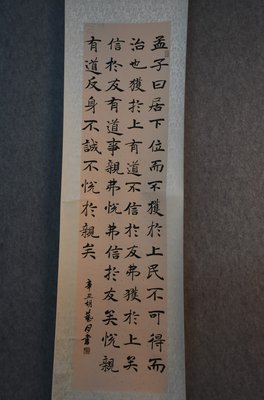 孟子曰居下位而不獲於上民不可得而
治也獲於上有道不信於友弗獲於上矣
信於友有道事親弗悅弗信於友矣悅親
有道反身不誠不悅於親矣